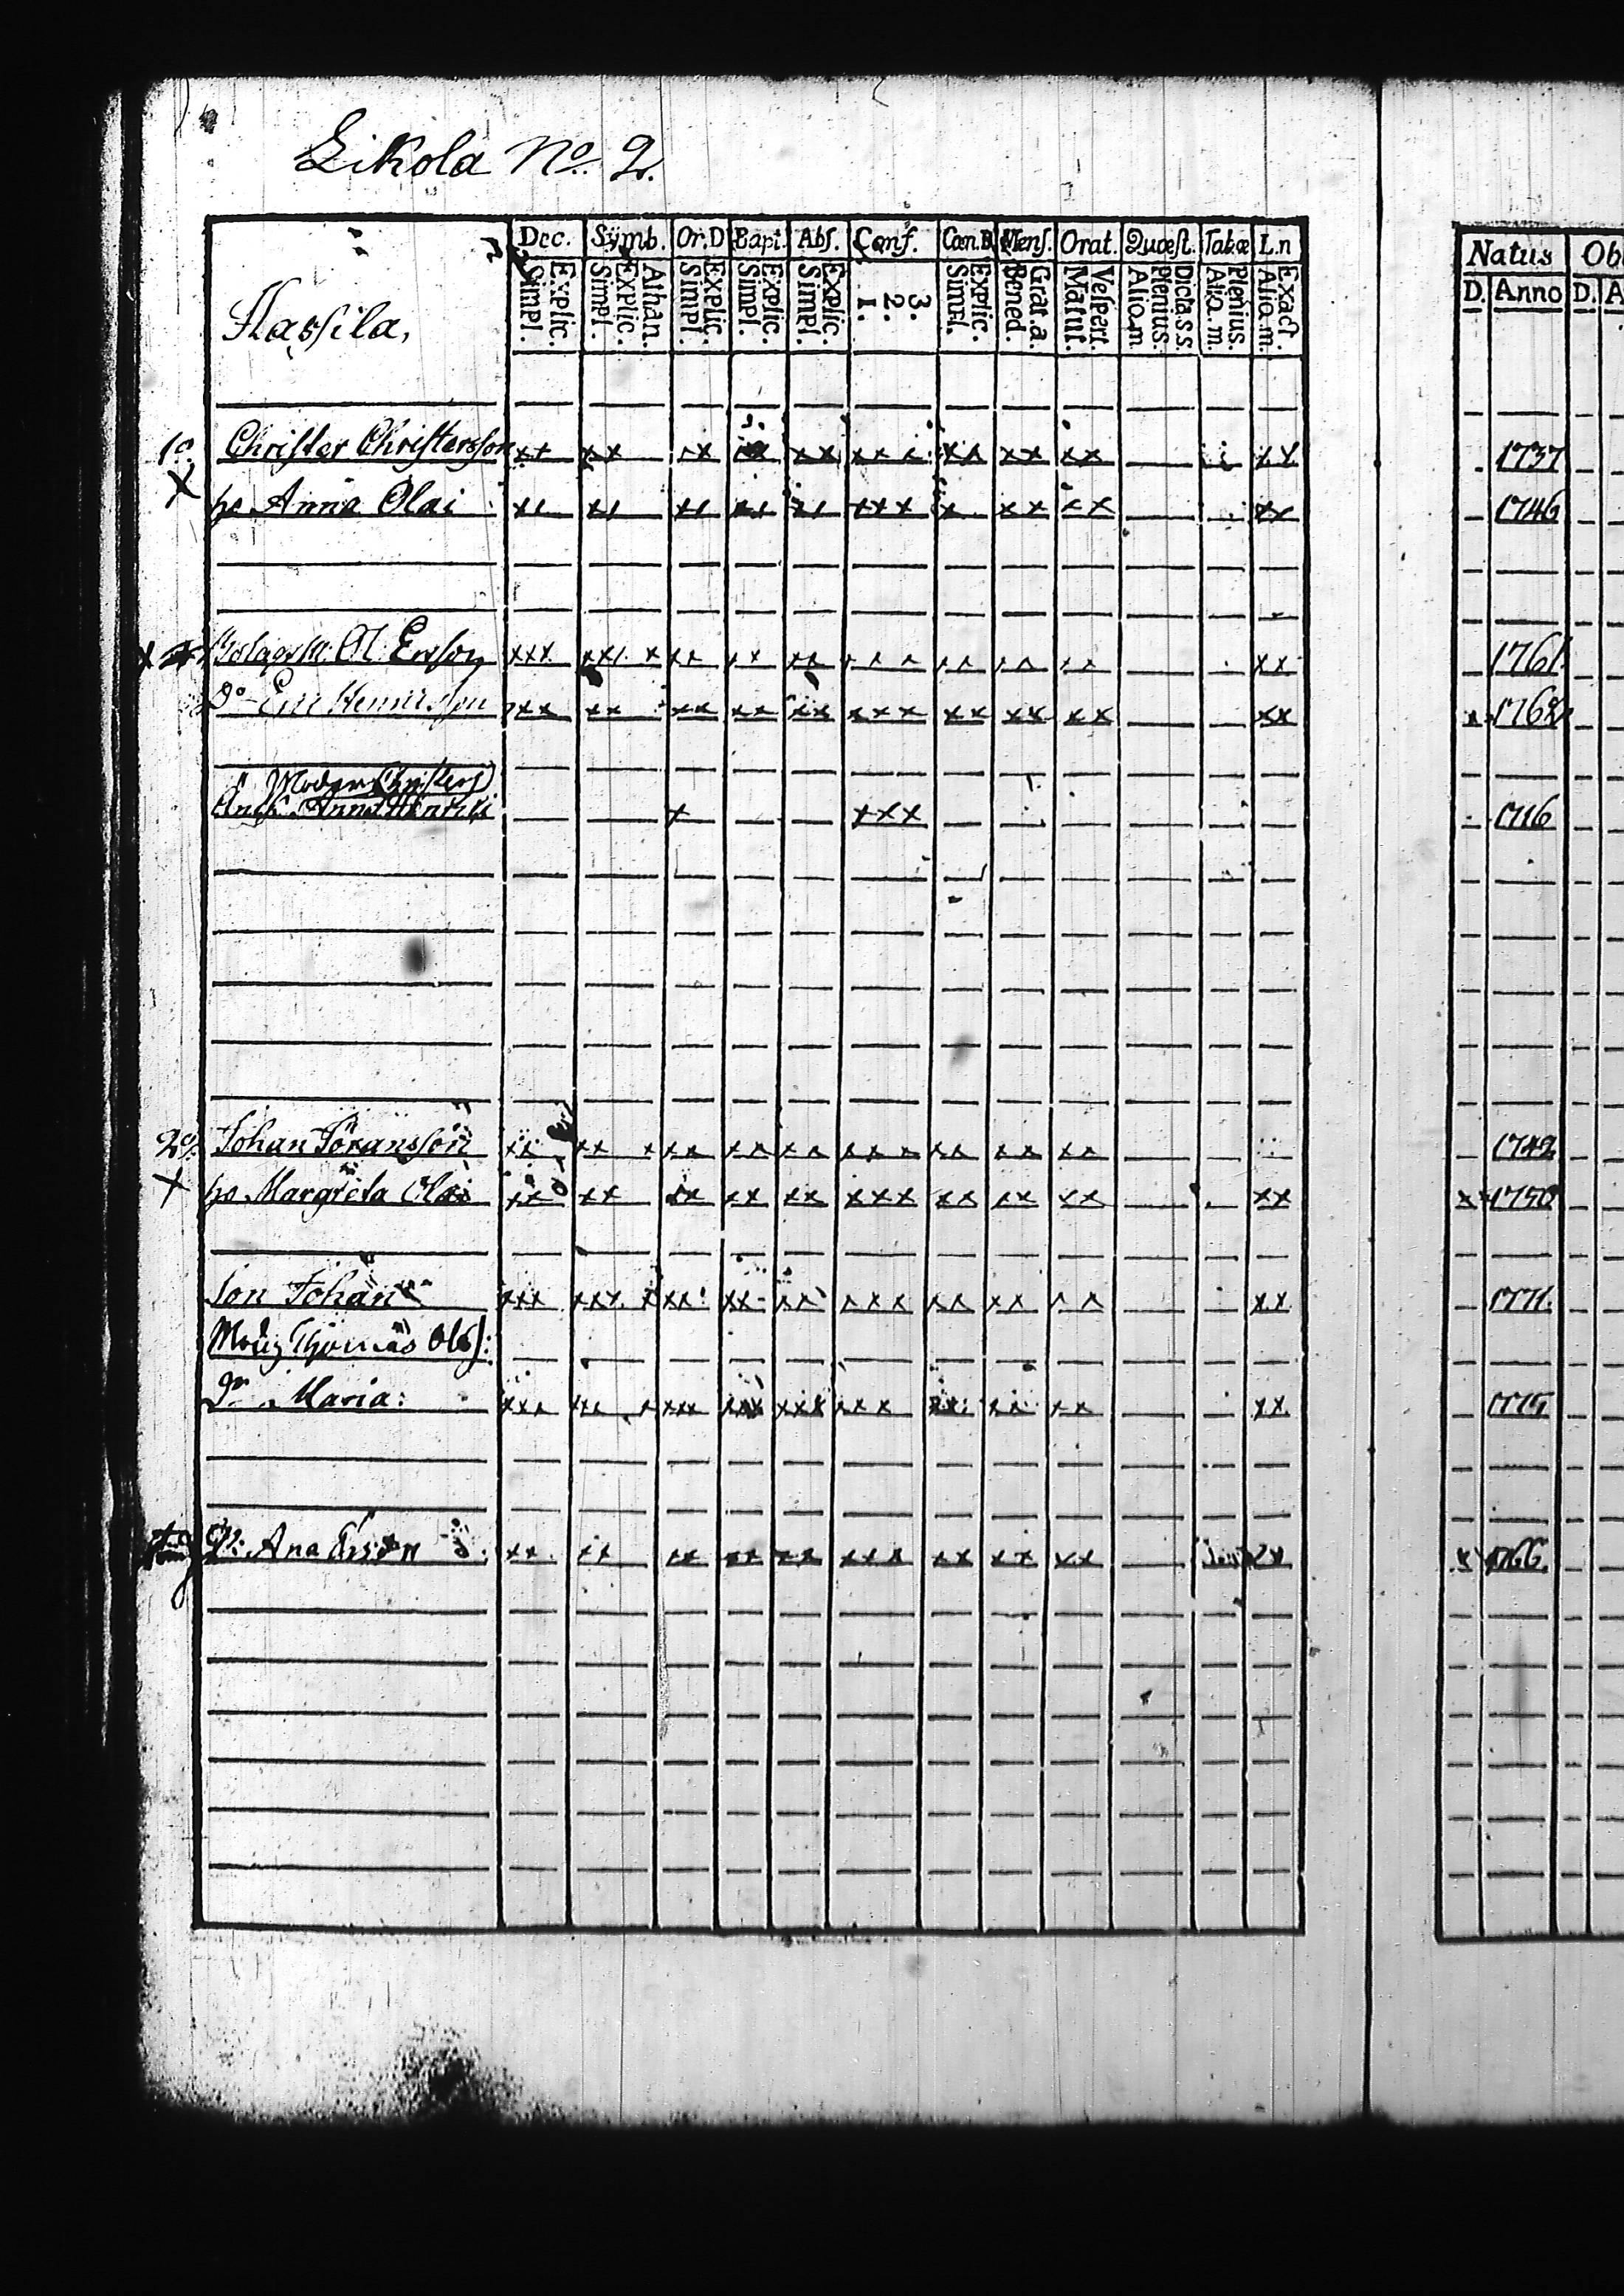 Likola No. 2.
Dec. Symb. Or.D Bapt. Abs. Conf. Cœn.D Mens. Orat. Quæst. Tabæ L.n
Natus
Explic. Simpl. Athan. Explic. Simpl. Explic. Simpl. Explic. Simpl. Explic. Simpl. 3. 2. 1. Explic. Simpl. Grat.a. Bened. Vespert. Matut. Dicta.s.s. Plenius. Aliq.m Plenius. Aliq.m. Exact. Aliq.m.
D. Anno D.
Hassila,
1o. Christer Christersson xx xx xx xx xx xxx xx xx xx xx 1737
X ho Anna Olai xx xx xx xx xx xxx x xx xx xx 1746
X Ol Ersson xxx xxx x xx xx xx xxx xx xx xx xx 1761
Do Eric Henricsson xxx xx xx xx xx xxx xx xx xx xx 176
Modren Christers
Enck. Anna Henrici x xxx 1716
2o. Johan Göransson xx xx x xx xx xx xxx xx xx xx 1742
X ho Margreta Olai xx xx xx xx xx xxx xx xx xx xx x 1750
Son Johan xxx xxx x xx xx xx xxx xx xx xx xx 1771
Måg Thomas Ols:
Dr Maria: xxx xx x xxx xxx xxx xxx xx xx xx xx 1775
Ana xx xx xx xx xx xxx xx xx xx xx x 1766